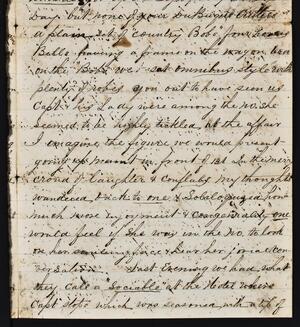 Days but none of your
a plain set of "country Bobs" four horses
Bells, having a frame on the wagon bed
on the "Bobs" we sat omnibus style with
plenty of robes you out to have seen us
Capt & his Lady were among the no. she
seemed to be highly tickled at the affair
I imagine the figure we would present
going up mount in front of Bt. In the merry
crowd of laughter & conflabs my thoughts
wandered back to one & Sololoquized how
much more enjoyment & congeniality one
would feel if she was in the no. to look
on her smiling face & hear her jovial con-
versation. Last evening we had what
they call a "Sociable" at the Hotel where
Capt stops which was seasoned with a tip of